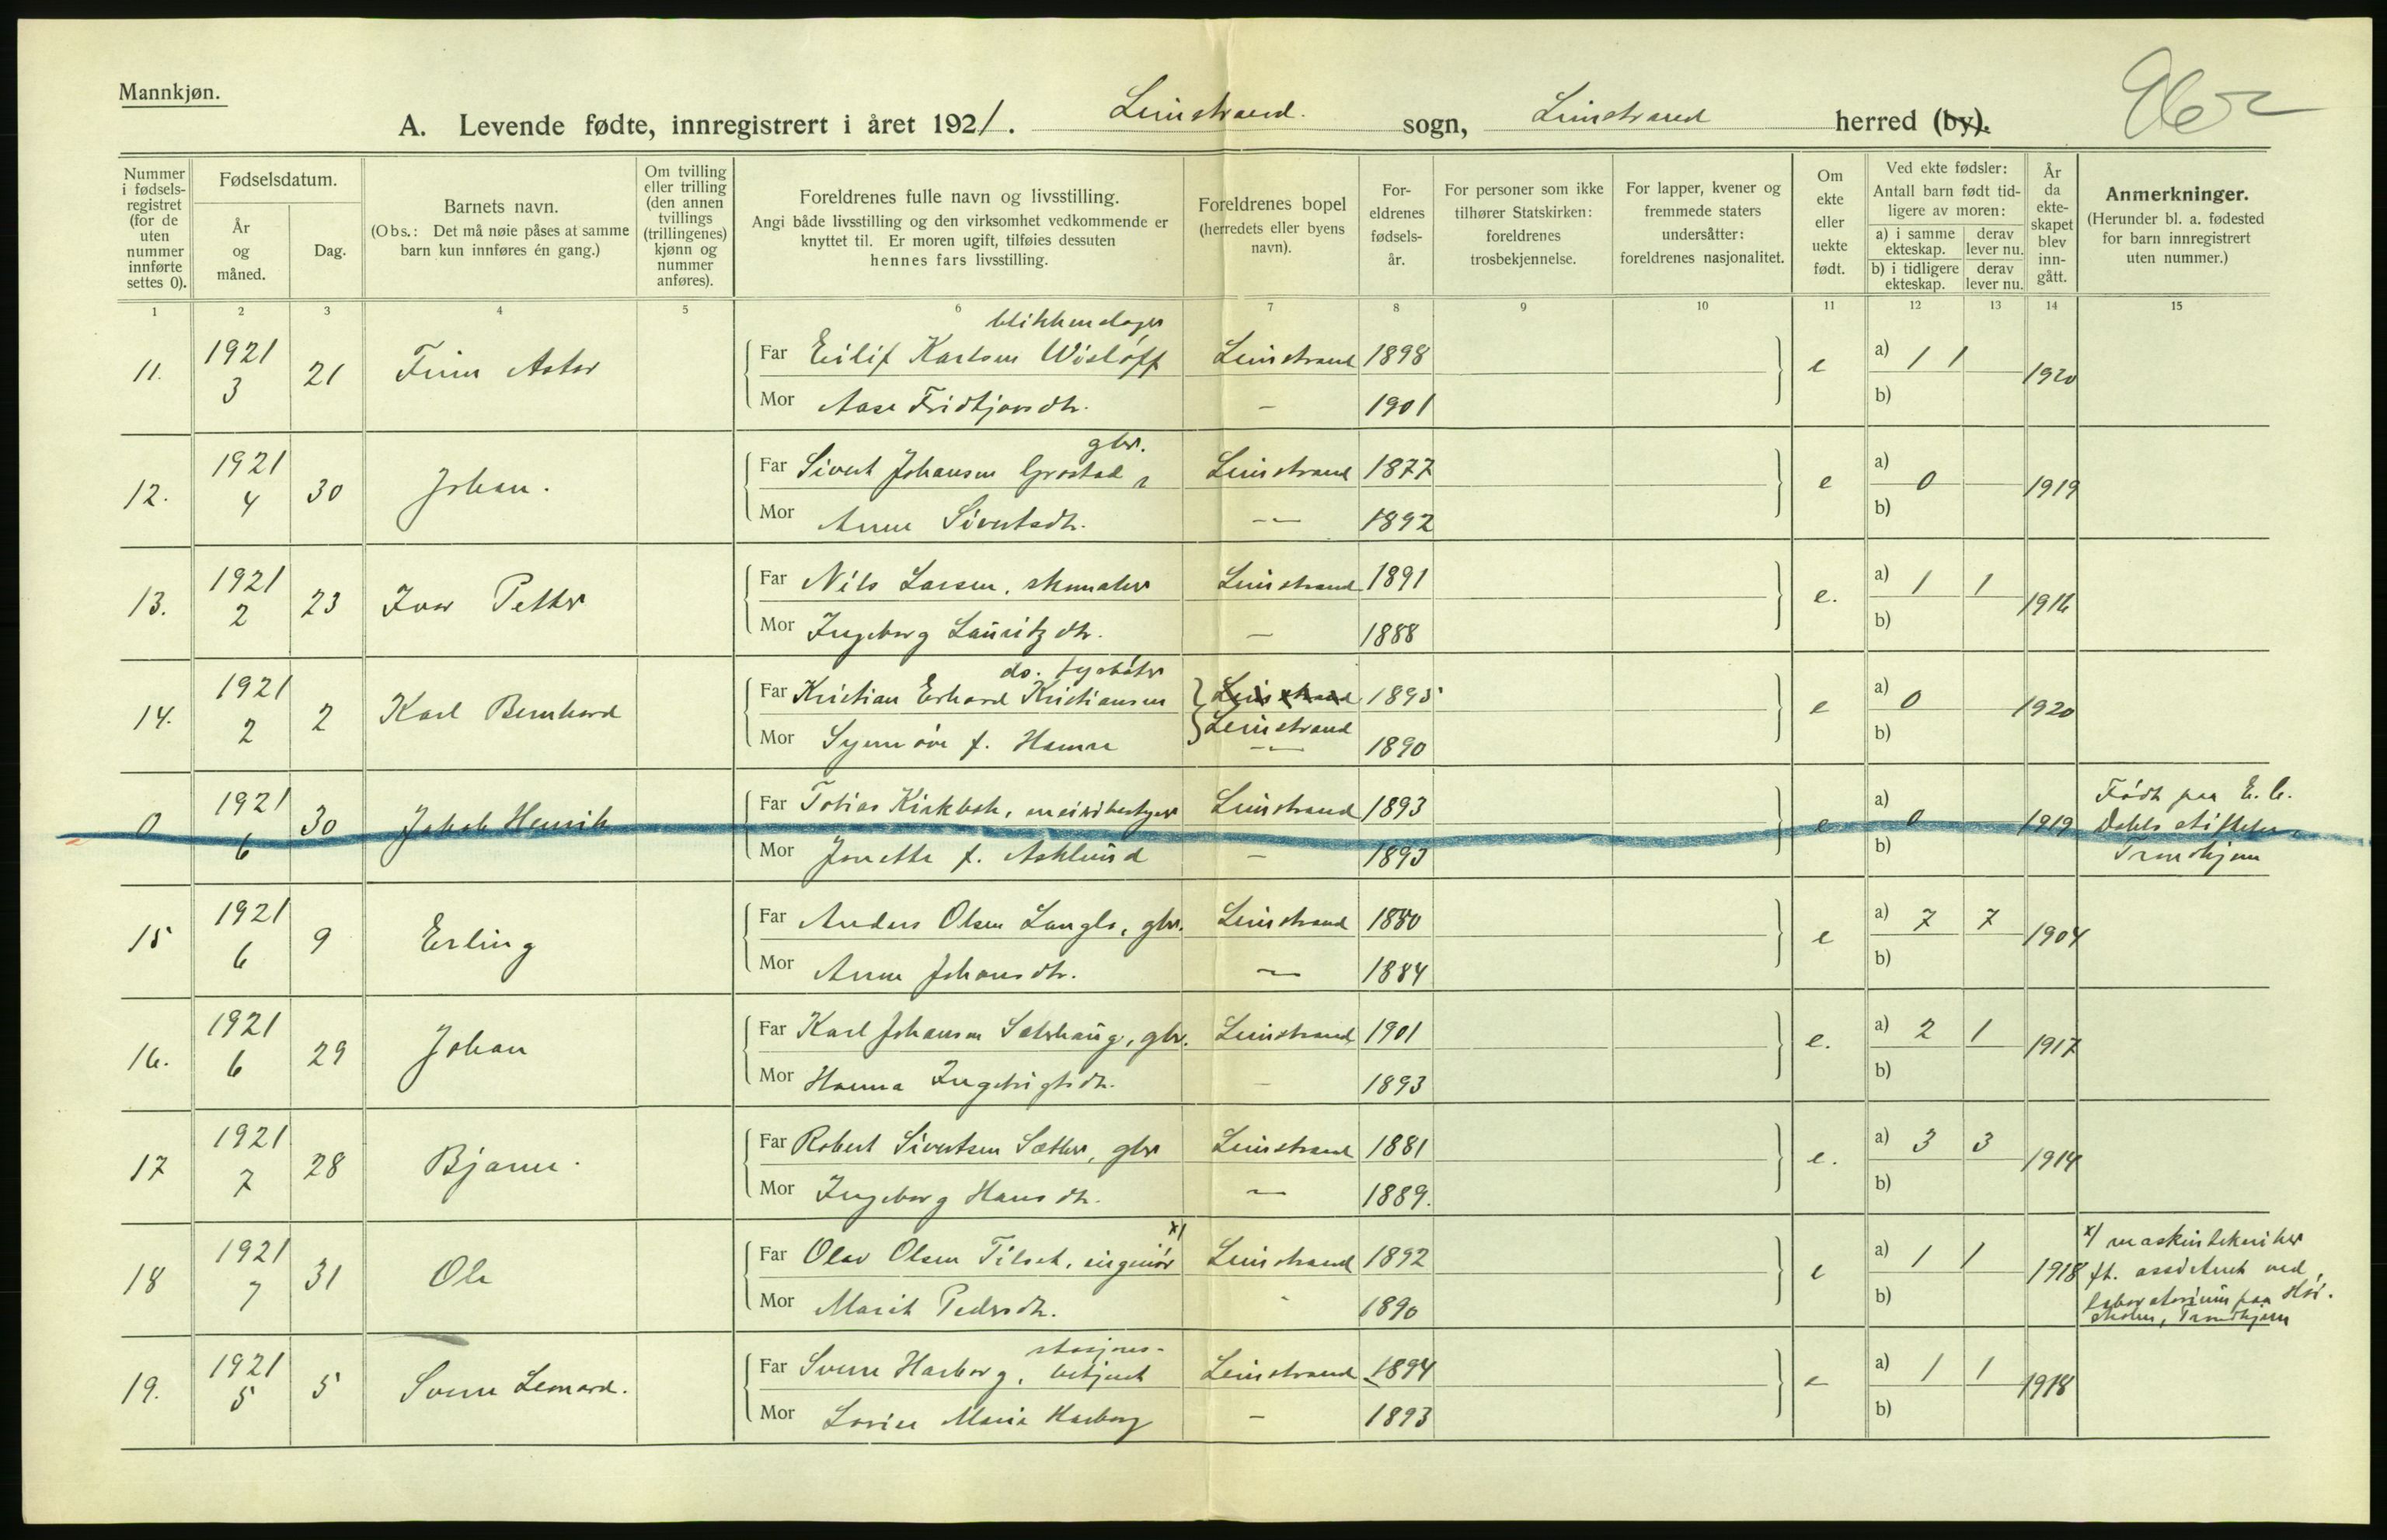 Mannkjøn.
A. Levende fødte, innregistrert i året 1921. Leinstrand. sogn, Leinstrand herred (by).
Nummer i fødsels-registret (for de uten nummer innførte settes 0).
Fødselsdatum.
År og måned.
Dag.
Barnets navn.
(Obs.: Det må nøie påses at samme barn kun innføres én gang.)
Om tvilling eller trilling (den annen tvillings (trillingenes) kjønn og nummer anføres).
Foreldrenes fulle navn og livsstilling.
Angi både livsstilling og den virksomhet vedkommende er knyttet til. Er moren ugift, tilføies dessuten hennes fars livsstilling.
Foreldrenes bopel (herredets eller byens navn).
For-eldrenes fødsels-år.
For personer som ikke tilhører Statskirken: foreldrenes trosbekjennelse.
For lapper, kvener og fremmede staters undersåtter: foreldrenes nasjonalitet.
Om ekte eller uekte født.
Ved ekte fødsler: Antall barn født tid-ligere av moren:
a) i samme ekteskap. derav lever nu.
b) i tidligere ekteskap. derav lever nu.
År da ekte-skapet blev inn-gått.
Anmerkninger.
(Herunder bl. a. fødested for barn innregistrert uten nummer.)
1 2 3 4 5 6 7 8 9 10 11 12 13 14 15
blikkenslager
11. 1921 3 21 Finn Astor Far Eilif Karlsen Wisløff Leinstrand 1898 e a) 1 1 1920
Mor Aase Fridtjovsdtr. — 1901 b)
gbr.
12. 1921 4 30 Johan. Far Sivert Johansen Leinstrand 1877 e a) 0 1919
Mor Anne Sivertsdtr. — 1892 b)
13. 1921 2 23 Ivar Petter Far Nils Larsen, skomaker Leinstrand 1891 e. a) 1 1 1916
Mor Ingeborg Lauritzdtr. — 1888 b)
do. fyrbøter
14. 1921 2 2 Karl Bernhard Far Kristian Erhard Kristiansen Leinstrand 1895 e a) 0 1920
Leinstrand
Mor Synnøve f. Hamre — 1890 b)
0 1921 6 30 Jakob Henrik Far Tobias Kirkbak, meieribestyrer Leinstrand 1893 e a) 0 1919 Født paa E. C. Dahls stiftelse, Trondhjem
Mor Jonette f. Asklund — 1893 b)
15 1921 6 9 Erling Far Anders Olsen Langlo, gbr. Leinstrand 1880 e a) 7 7 1904
Mor Anne Johansdtr. — 1884 b)
16. 1921 6 29 Johan Far Karl Johansen Sæterhaug, gbr. Leinstrand 1901 e. a) 2 1 1917
Mor Hanna Ingebrigtsdtr. — 1893 b)
17 1921 7 28 Bjarne. Far Robert Sivertsen Sæther, gbr Leinstrand 1881 e. a) 3 3 1914
Mor Ingeborg Hansdtr. — 1889. b)
18 1921 7 31 Ole Far Olav Olsen Tilset, ingeniør x) Leinstrand 1892 e a) 1 1 1918 x) maskintekniker ft. assistent ved laboratorium paa Høi-skolen, Trondhjem
Mor Marit Pedersdtr. 1890 b)
stasjons-
19. 1921 5 5 Sverre Lenard. Far Sverre Harborg, betjent Leinstrand 1894 e a) 1 1 1918
Mor Lovise Marie Harborg — 1893 b)